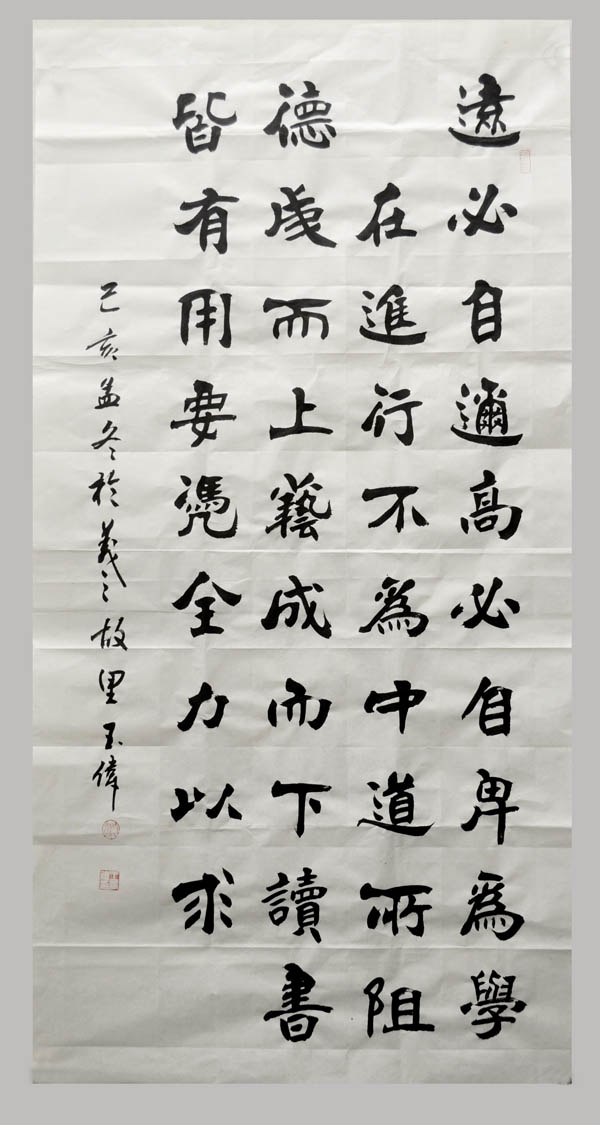 遠必自邇高必自卑爲學
在進行不爲中道所阻
德成而上藝成而下讀書
皆有用要凴全力以求
己亥孟冬於羲之故里玉偉